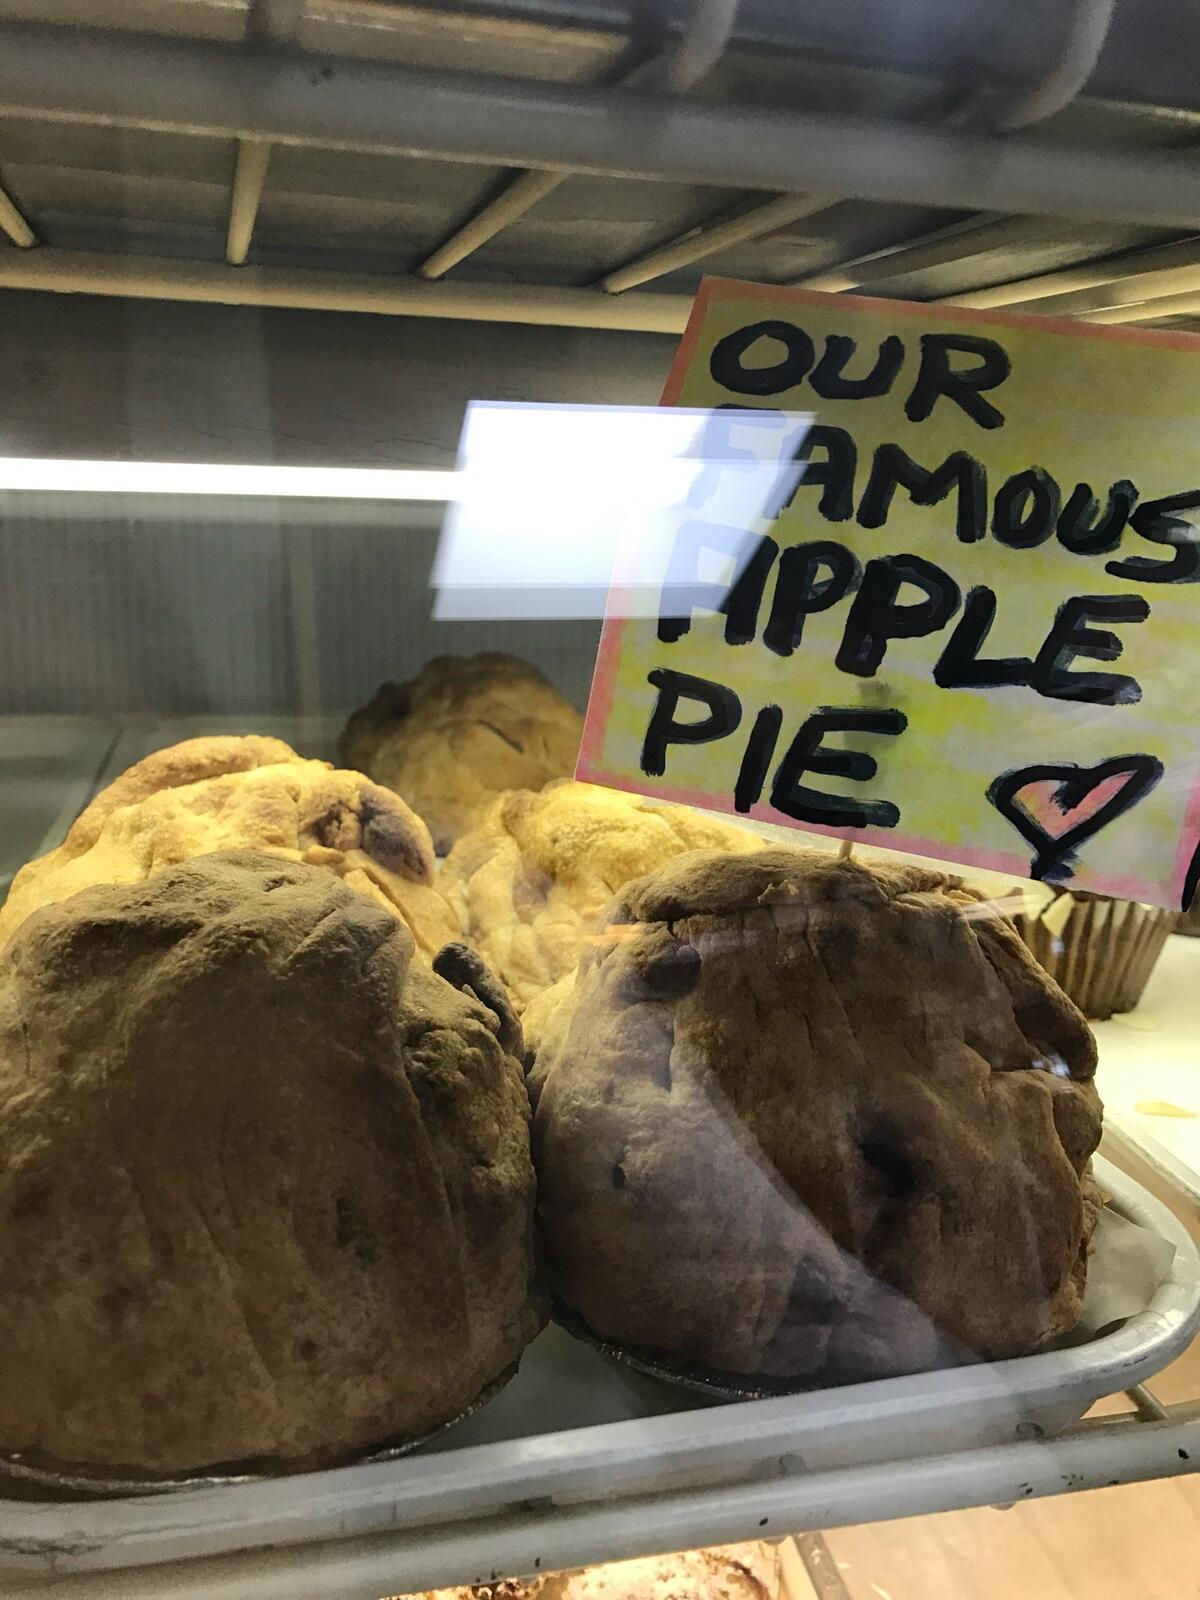 OUR
FAMOUS
APPLE
PIE